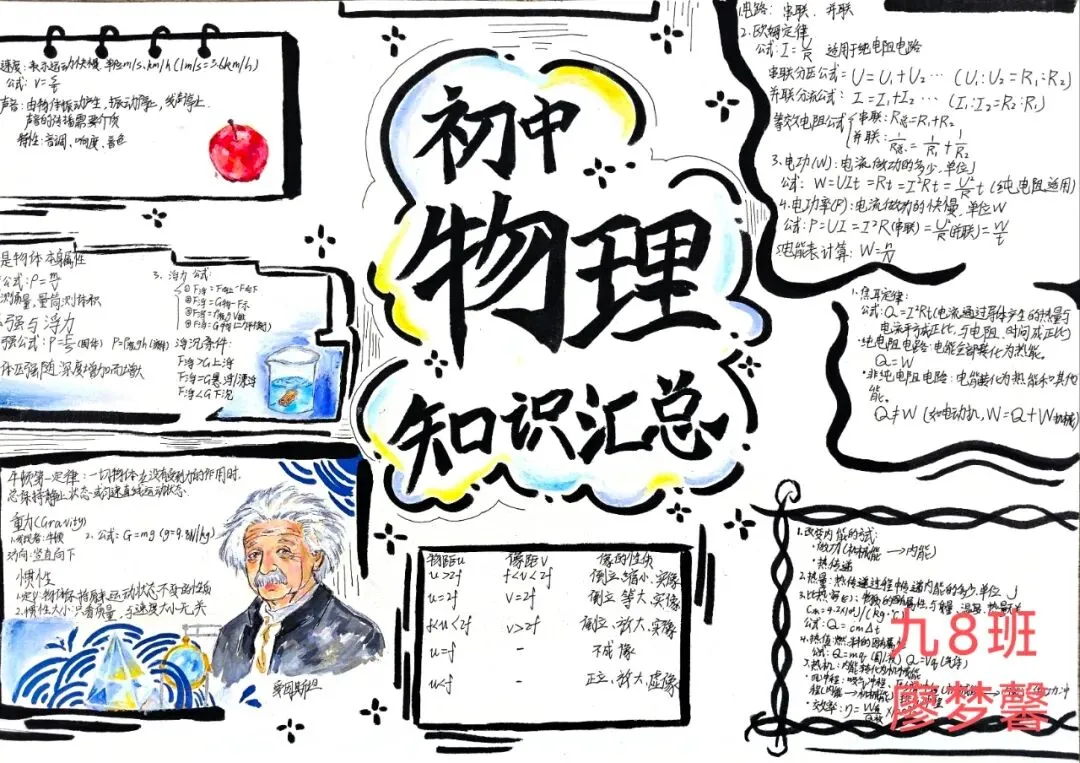 初中
物理
知识汇总
速度:表示运动快慢 单位m/s、km/h (1m/s=3.6km/h)
公式: V=s/t
声音:由物体振动产生,振动停止,发声停止.
声音的传播需要介质
特性:音调、响度、音色
是物体本身属性
公式:ρ=m/v
测质量,量筒测体积
强与浮力
强公式:P=F/S(固体) P=ρ液gh(液体)
体压强随深度增加而增大
3、浮力公式:
①F浮=F向上-F向下
②F浮=G物-F示
浮沉条件:
F浮>G上浮
F浮=G悬浮/漂浮
F浮<G下沉
牛顿第一定律:一切物体在没有受到力的作用时.
总保持静止状态或匀速直线运动状态.
重力(Gravity)
1.发现者:牛顿 2.公式:G=mg (g=9.8N/kg)
方向:竖直向下
惯性
1.定义:物体保持原来运动状态不变的性质
2.惯性大小:只看质量,与速度大小无关
爱因斯坦
物距u 像距v 像的性质
u>2f f<v<2f 倒立、缩小、实像
u=2f v=2f 倒立、等大、实像
f<u<2f v>2f 倒立、放大、实像
u=f - 不成像
u<f - 正立、放大、虚像
电路:串联、并联
2.欧姆定律
公式:I=U/R 适用于纯电阻电路
串联分压公式=U=U₁+U₂… (U₁:U₂=R₁:R₂)
并联分流公式:I=I₁+I₂… (I₁:I₂=R₂:R₁)
等效电阻公式 串联:R总=R₁+R₂
并联:1/R总=1/R₁+1/R₂
3、电功(W):电流做功的多少.单位J
公式:W=UIt=Rt=I²Rt=U²/R t (纯电阻适用)
4.电功率(P):电流做功的快慢.单位W
公式:P=UI=I²R(串联)=U²/R(并联)=W/t
5.电能表计算:W=n/N
1.焦耳定律:
公式:Q=I²Rt(电流通过导体产生的热量与
电流平方成正比,与电阻、时间成正比)
·纯电阻电路:电能全部转化为热能。
Q=W
·非纯电阻电路:电能转化为热能和其他
能。
Q≠W (如电动机,W=Q+W机械)
1.改变内能的方式:
·做功(机械能→内能)
·热传递
2.热量:热传递过程中传递内能的多少.单位J
公式:Q=cmΔt
公式:Q=mq(固/液) Q=Vq(气体)
九8班
廖梦馨